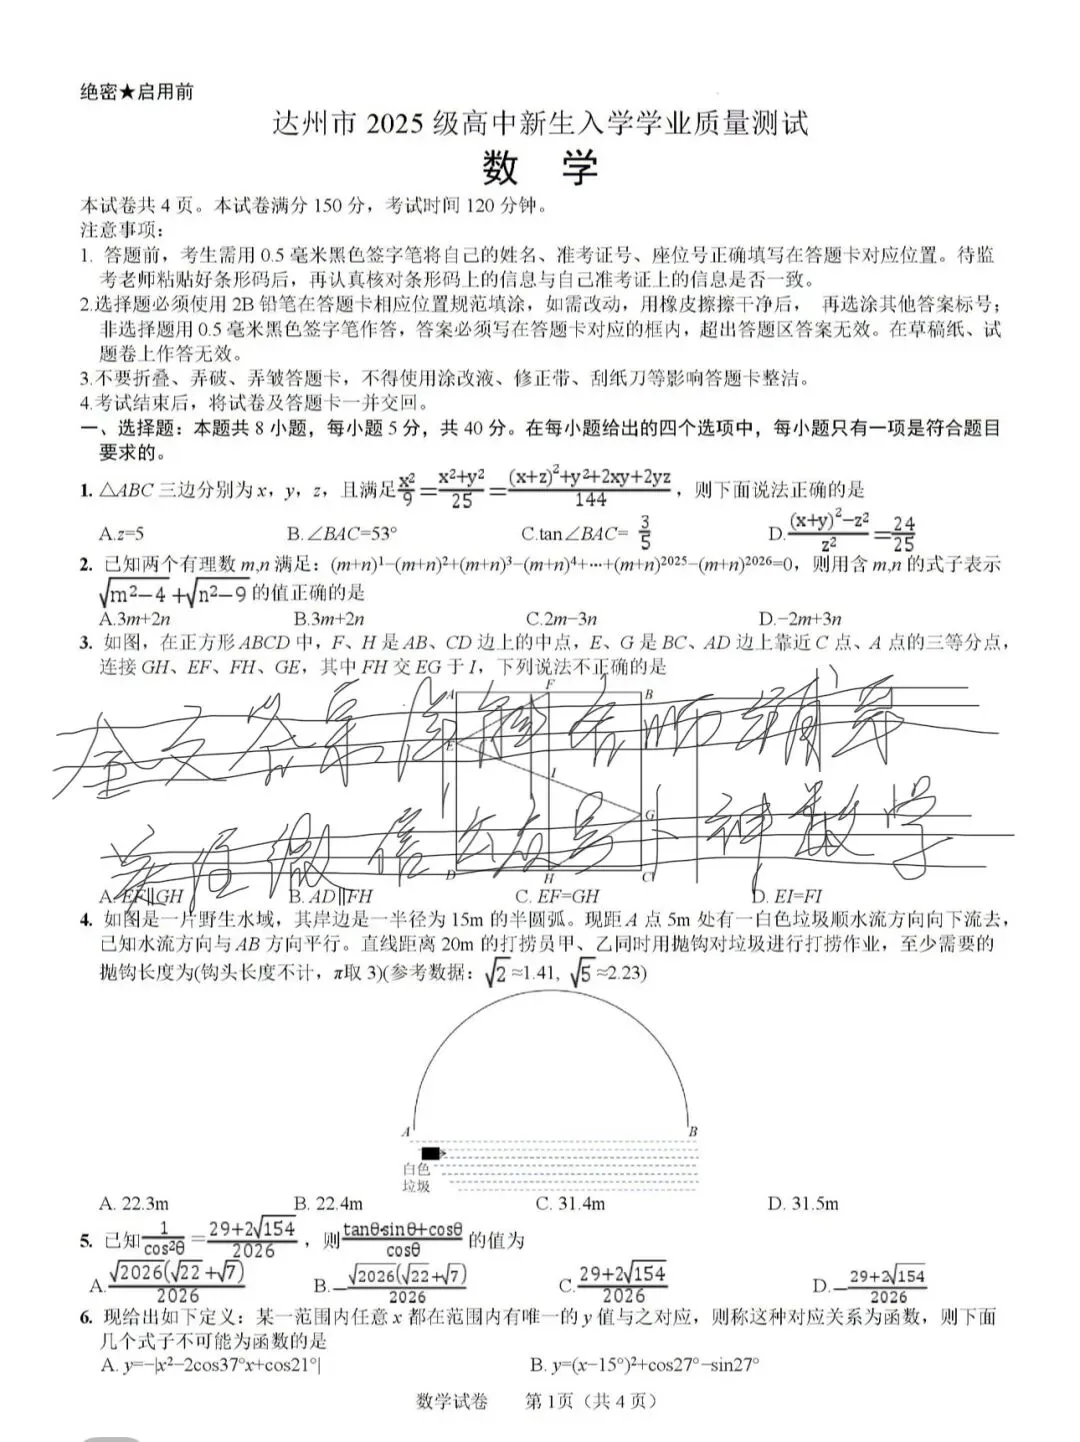 绝密★启用前
达州市 2025 级高中新生入学学业质量测试
数 学
本试卷共 4 页。本试卷满分 150 分，考试时间 120 分钟。
注意事项：
1. 答题前，考生需用 0.5 毫米黑色签字笔将自己的姓名、准考证号、座位号正确填写在答题卡对应位置。待监
考老师粘贴好条形码后，再认真核对条形码上的信息与自己准考证上的信息是否一致。
2.选择题必须使用 2B 铅笔在答题卡相应位置规范填涂，如需改动，用橡皮擦擦干净后， 再选涂其他答案标号；
非选择题用 0.5 毫米黑色签字笔作答，答案必须写在答题卡对应的框内，超出答题区答案无效。在草稿纸、试
题卷上作答无效。
3.不要折叠、弄破、弄皱答题卡，不得使用涂改液、修正带、刮纸刀等影响答题卡整洁。
4.考试结束后，将试卷及答题卡一并交回。
一、选择题：本题共 8 小题，每小题 5 分，共 40 分。在每小题给出的四个选项中，每小题只有一项是符合题目
要求的。
1. △ABC 三边分别为 x，y，z，且满足 x²/9 = (x²+y²)/25 = ((x+z)²+y²+2xy+2yz)/144 ，则下面说法正确的是
A.z=5 B.∠BAC=53° C.tan∠BAC= 3/5 D. ((x+y)²−z²)/z² = 24/25
2. 已知两个有理数 m,n 满足：(m+n)¹−(m+n)²+(m+n)³−(m+n)⁴+···+(m+n)²⁰²⁵−(m+n)²⁰²⁶=0，则用含 m,n 的式子表示
√(m²−4) +√(n²−9) 的值正确的是
A.3m+2n B.3m+2n C.2m−3n D.−2m+3n
3. 如图，在正方形 ABCD 中，F、H 是 AB、CD 边上的中点，E、G 是 BC、AD 边上靠近 C 点、A 点的三等分点，
连接 GH、EF、FH、GE，其中 FH 交 EG 于 I，下列说法不正确的是
A F B
全文答案请解锁老师辅导
E
I
G
关注微信公众号：神数学
D H C
A. EF∥GH B. AD∥FH C. EF=GH D. EI=FI
4. 如图是一片野生水域，其岸边是一半径为 15m 的半圆弧。现距 A 点 5m 处有一白色垃圾顺水流方向向下流去，
已知水流方向与 AB 方向平行。直线距离 20m 的打捞员甲、乙同时用抛钩对垃圾进行打捞作业，至少需要的
抛钩长度为(钩头长度不计，π取 3)(参考数据：√2≈1.41，√5≈2.23)
A B
白色
垃圾
A. 22.3m B. 22.4m C. 31.4m D. 31.5m
5. 已知 1/cos²θ = (29+2√154)/2026 ，则 (tanθ·sinθ+cosθ)/cosθ 的值为
A. √2026(√22+√7)/2026 B. −√2026(√22+√7)/2026 C. (29+2√154)/2026 D. −(29+2√154)/2026
6. 现给出如下定义：某一范围内任意 x 都在范围内有唯一的 y 值与之对应，则称这种对应关系为函数，则下面
几个式子不可能为函数的是
A. y=−|x²−2cos37°x+cos21°| B. y=(x−15°)²+cos27°−sin27°
数学试卷 第 1页（共 4 页）